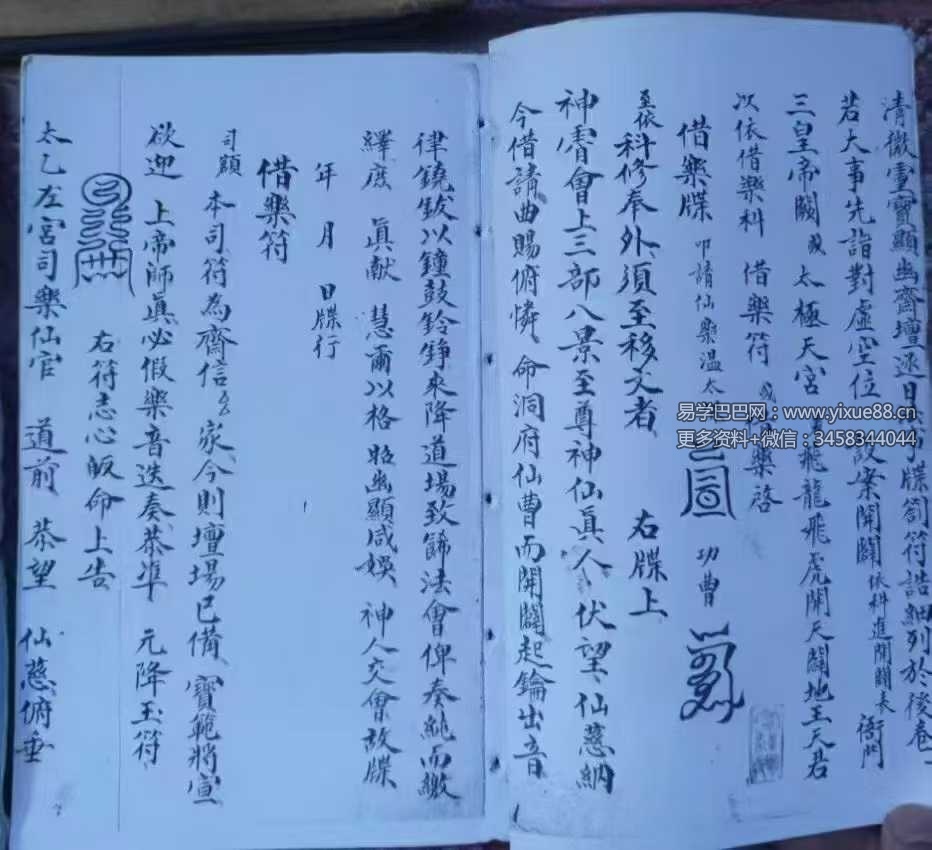 清微靈寶顯幽齋壇逐日 牒劄符誥細列於後卷
若大事先詣對虛空位設案開闢依科進開闢表 衙門
三皇帝闕或太極天宮 飛龍飛虎開天闢地王天君
次依借樂科 借樂符 或借樂啓
借樂牒 叩請仙樂溫太 功曹
至依科修奉外須至移文者 右牒上
神霄會上三部八景至尊神仙眞人伏望仙慈納
今借請曲賜俯憐命洞府仙曹而開闢起鑰出音
律鐃鈸以鐘鼓鈴錚來降道場致篩法會俾奏純而繳
繹度 眞献 慧爾以格昭幽顯咸娛 神人交會故牒
年 月 日牒行
借樂符
司額 本司符為齋信 家今則壇場已備寶範將宣
欲迎 上帝師眞必假樂音迭奏恭準 元降玉符
右符志心皈命上告
太乙左宮司樂仙官 道前 恭望 仙慈俯垂
易学巴巴网:www.yixue88.cn
更多资料+微信:3458344044